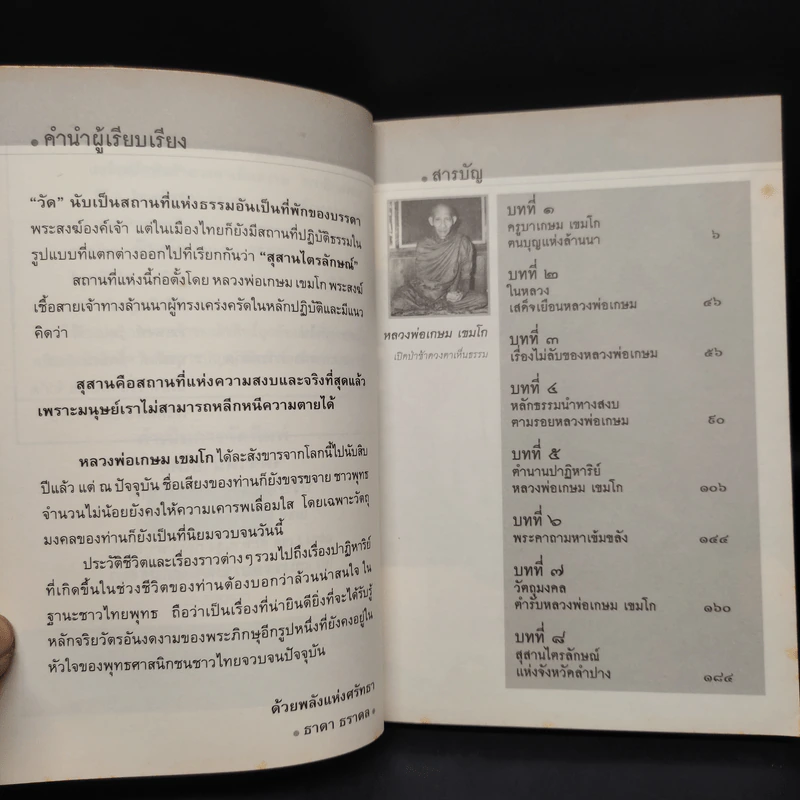 คำนำผู้เรียบเรียง
“วัด” นับเป็นสถานที่แห่งธรรมอันเป็นที่พักของบรรดา
พระสงฆ์องค์เจ้า แต่ในเมืองไทยก็ยังมีสถานที่ปฏิบัติธรรมใน
รูปแบบที่แตกต่างออกไปที่เรียกกันว่า “สุสานไตรลักษณ์”
สถานที่แห่งนี้ก่อตั้งโดย หลวงพ่อเกษม เขมโก พระสงฆ์
เชื้อสายเจ้าทางล้านนาผู้ทรงเคร่งครัดในหลักปฏิบัติและมีแนว
คิดว่า
สุสานคือสถานที่แห่งความสงบและจริงที่สุดแล้ว
เพราะมนุษย์เราไม่สามารถหลีกหนีความตายได้
หลวงพ่อเกษม เขมโก ได้ละสังขารจากโลกนี้ไปนับสิบ
ปีแล้ว แต่ ณ ปัจจุบัน ชื่อเสียงของท่านก็ยังขจรขจาย ชาวพุทธ
จำนวนไม่น้อยยังคงให้ความเคารพเลื่อมใส โดยเฉพาะวัตถุ
มงคลของท่านก็ยังเป็นที่นิยมจวบจนวันนี้
ประวัติชีวิตและเรื่องราวต่างๆ รวมไปถึงเรื่องปาฏิหาริย์
ที่เกิดขึ้นในช่วงชีวิตของท่านต้องบอกว่าล้วนน่าสนใจ ใน
ฐานะชาวไทยพุทธ ถือว่าเป็นเรื่องที่น่ายินดียิ่งที่จะได้รับรู้
หลักจริยวัตรอันงดงามของพระภิกษุอีกรูปหนึ่งที่ยังคงอยู่ใน
หัวใจของพุทธศาสนิกชนชาวไทยจวบจนปัจจุบัน
ด้วยพลังแห่งศรัทธา
ธาดา ธราดล
สารบัญ
หลวงพ่อเกษม เขมโก
เปิดป่าช้าดวงตาเห็นธรรม
บทที่ ๑
ครูบาเกษม เขมโก
ตนบุญแห่งล้านนา ๖
บทที่ ๒
ในหลวง
เสด็จเยือนหลวงพ่อเกษม ๔๖
บทที่ ๓
เรื่องไม่ลับของหลวงพ่อเกษม ๕๖
บทที่ ๔
หลักธรรมนำทางสงบ
ตามรอยหลวงพ่อเกษม ๙๐
บทที่ ๕
ตำนานปาฏิหาริย์
หลวงพ่อเกษม เขมโก ๑๐๖
บทที่ ๖
พระคาถามหาเข้มขลัง ๑๔๔
บทที่ ๗
วัตถุมงคล
ตำรับหลวงพ่อเกษม เขมโก ๑๖๐
บทที่ ๘
สุสานไตรลักษณ์
แห่งจังหวัดลำปาง ๑๘๔